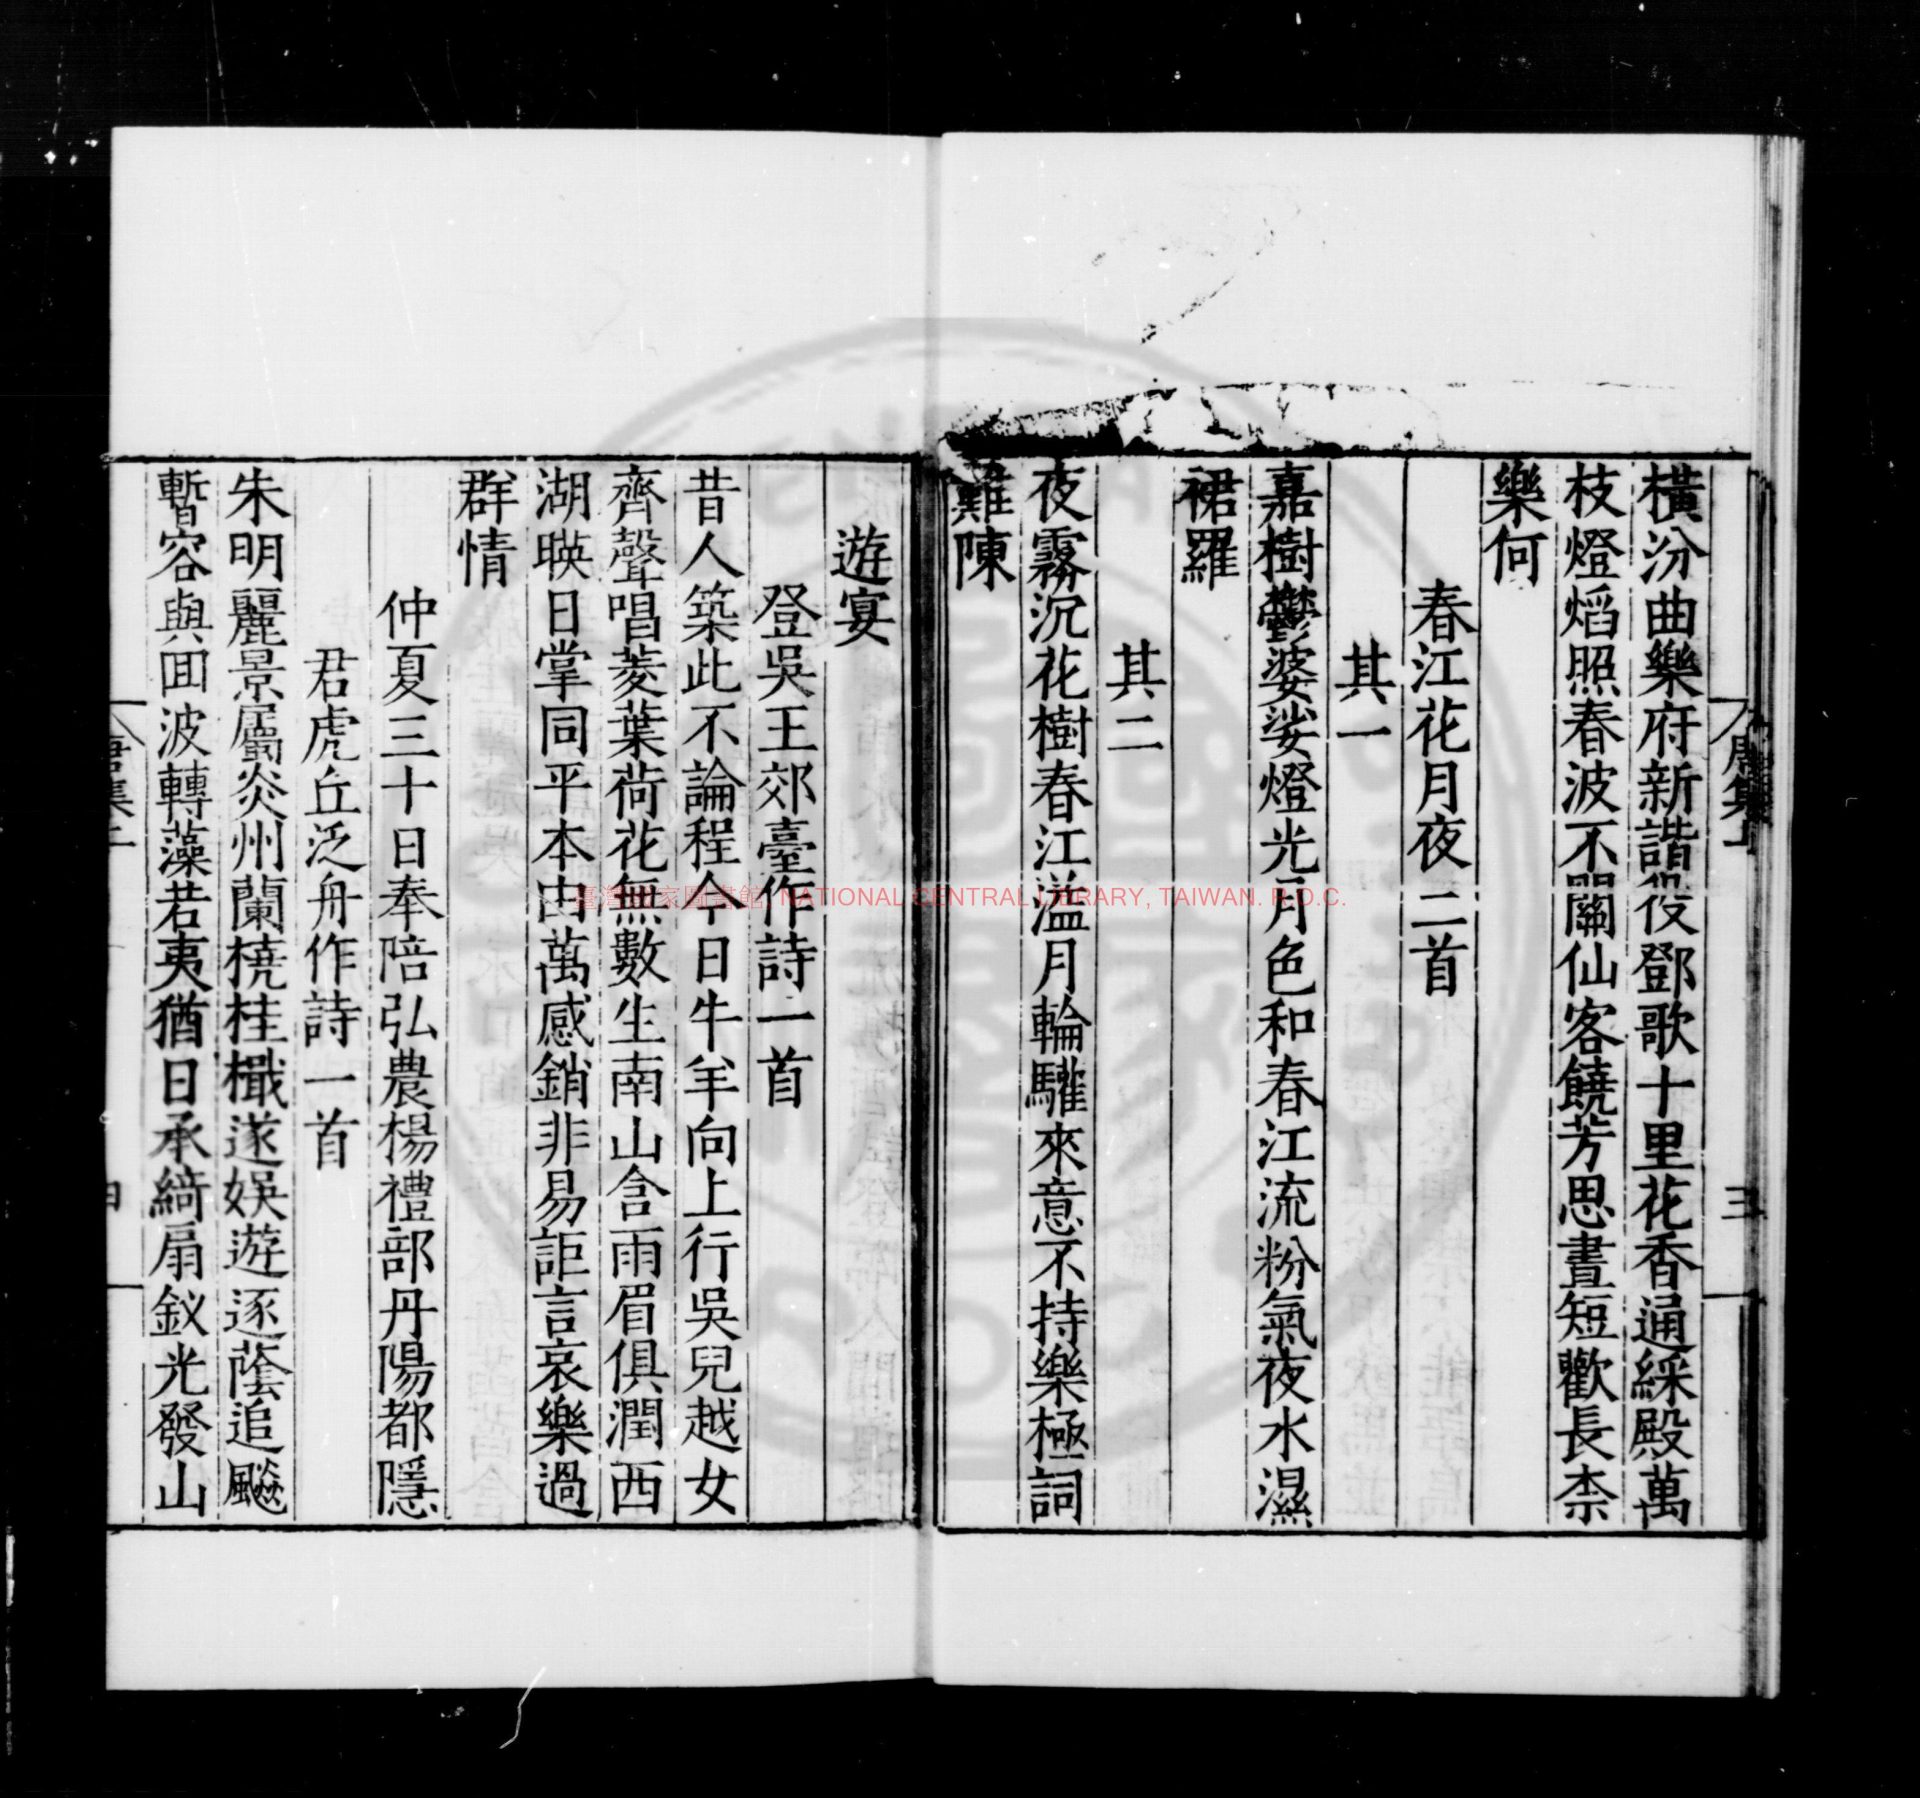 橫汾曲樂府新諧役鄧歌十里花香通綵殿萬
枝燈熖照春波不關仙客饒芳思晝短歡長柰
樂何
春江花月夜二首
其一
嘉樹鬱婆娑燈光月色和春江流粉氣夜水濕
裙羅
其二
夜霧沉花樹春江溢月輪驩來意不持樂極詞
難陳
遊宴
登吳王郊臺作詩一首
昔人築此不論程今日牛羊向上行吳兒越女
齊聲唱菱葉荷花無數生南山含雨眉俱潤西
湖暎日掌同平本由萬感銷非易詎言哀樂過
群情
仲夏三十日奉陪弘農楊禮部丹陽都隱
君虎丘泛舟作詩一首
朱明麗景屬炎州蘭橈桂檝遂娛遊逐蔭追飈
暫容與囬波轉藻若夷猶日承綺扇釵光發山
三
臺灣國家圖書館, NATIONAL CENTRAL LIBRARY, TAIWAN. R.O.C.